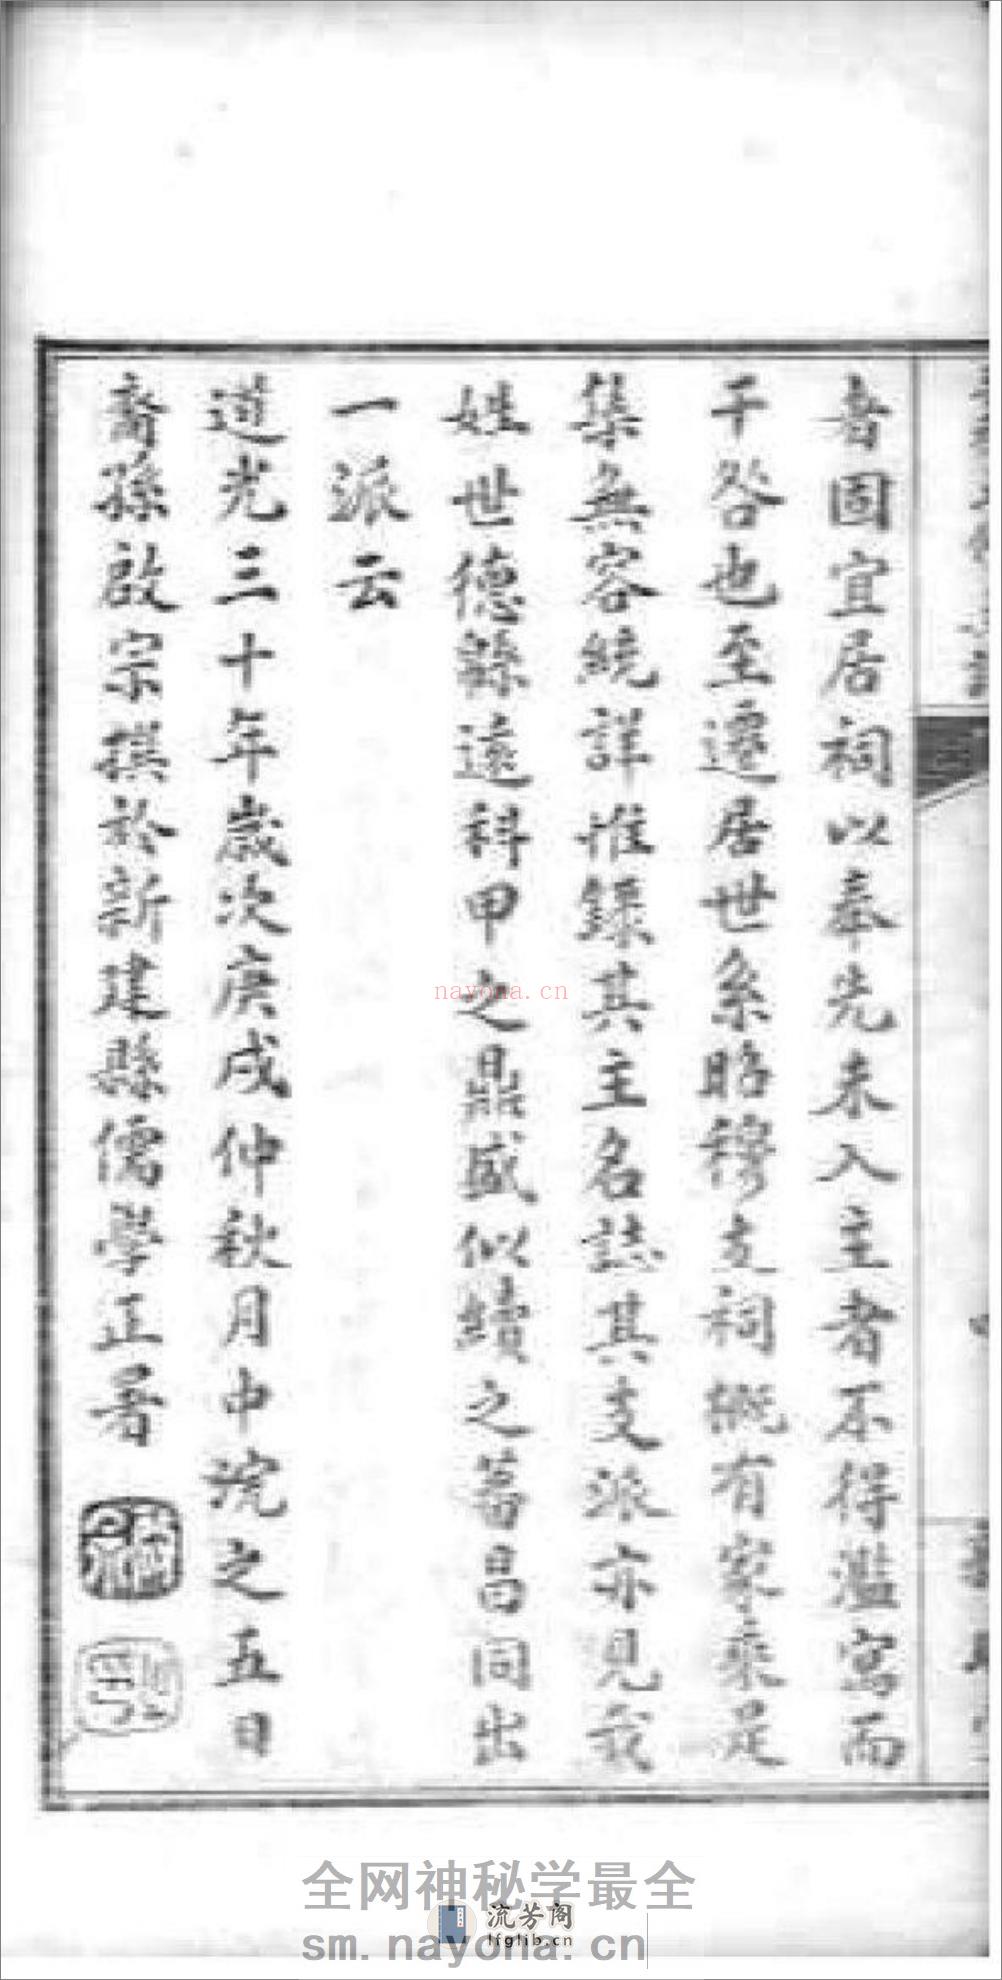 者固宜居祠以奉先未入主者不得濫寫而
干咎也至遷居世系昭穆支祠概有家乘足
集無容繞詳惟錄其主名誌其支派亦見我
姓世德緜遠科甲之鼎盛似續之蕃昌同出
一派云
道光三十年歲次庚戌仲秋月中浣之五日
裔孫啟宗撰於新建縣儒學正署
nayona.cn
全网神秘学最全
流芳阁
lfglib.cn
sm.nayona.cn